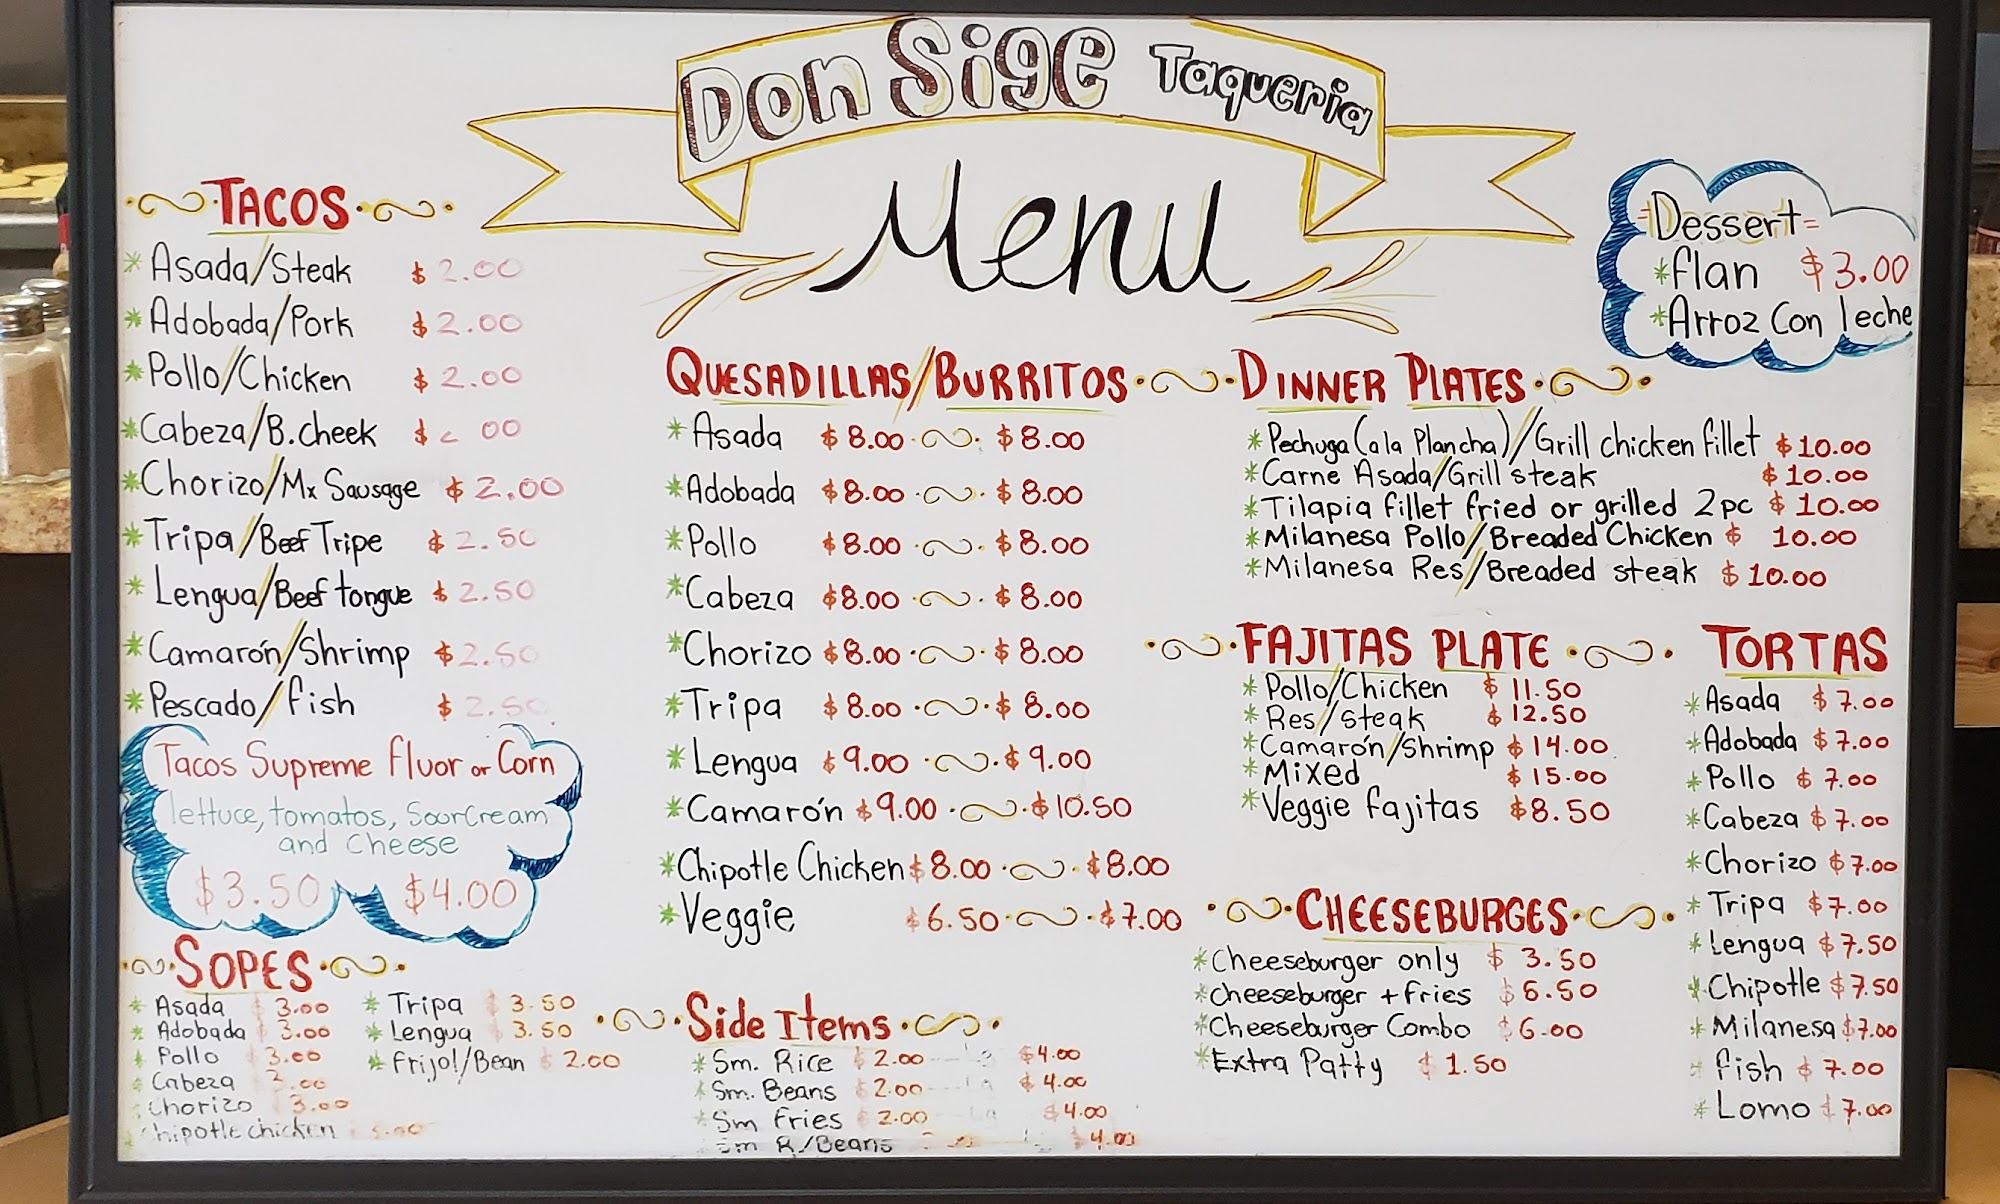 Don Sige Taqueria
Menu
TACOS
* Asada/Steak $ 2.00
* Adobada/Pork $ 2.00
* Pollo/Chicken $ 2.00
* Cabeza/B.cheek $ 2 00
* Chorizo/Mx Sausage $ 2.00
* Tripa/Beef Tripe $ 2.50
* Lengua/Beef tongue $ 2.50
* Camarón/Shrimp $ 2.50
* Pescado/fish $ 2.50
Tacos Supreme Fluor or Corn
lettuce, tomatos, SourCream
and Cheese
$3.50 $4.00
SOPES
* Asada $ 3.00
* Adobada $ 3.00
* Pollo $ 3.00
* Cabeza .00
* Chorizo 3.00
* Chipotle chicken
* Tripa $ 3.50
* Lengua $ 3.50
* Frijol/Bean $ 2.00
QUESADILLAS/BURRITOS
* Asada $ 8.00 $ 8.00
* Adobada $8.00 $ 8.00
* Pollo $8.00 $ 8.00
* Cabeza $8.00 $ 8.00
* Chorizo $8.00 $ 8.00
* Tripa $ 8.00 $ 8.00
* Lengua $9.00 $ 9.00
* Camarón $9.00 $10.50
* Chipotle Chicken $8.00 $8.00
* Veggie $6.50 $7.00
Side Items
* Sm. Rice $ 2.00 Lg $4.00
* Sm. Beans $ 2.00 Lg $ 4.00
* Sm Fries $ 2.00 Lg $4.00
Sm R/Beans $ 4.00
Dessert
* Flan $3.00
* Arroz Con leche
DINNER PLATES
* Pechuga (a la Plancha)/Grill chicken fillet $10.00
* Carne Asada/Grill steak $10.00
* Tilapia fillet fried or grilled 2pc $ 10.00
* Milanesa Pollo/Breaded Chicken $ 10.00
* Milanesa Res/Breaded steak $10.00
FAJITAS PLATE
* Pollo/Chicken $ 11.50
* Res/steak $ 12.50
* Camarón/Shrimp $ 14.00
* Mixed $ 15.00
* Veggie fajitas $8.50
CHEESEBURGES
* Cheeseburger only $ 3.50
* cheeseburger + fries $ 5.50
* Cheeseburger Combo $6.00
* Extra Patty $ 1.50
TORTAS
* Asada $ 7.00
* Adobada $ 7.00
* Pollo $ 7.00
* Cabeza $ 7.00
* Chorizo $7.00
* Tripa $7.00
* Lengua $ 7.50
* Chipotle $ 7.50
* Milanesa $7.00
* fish $ 7.00
* Lomo $ 7.00